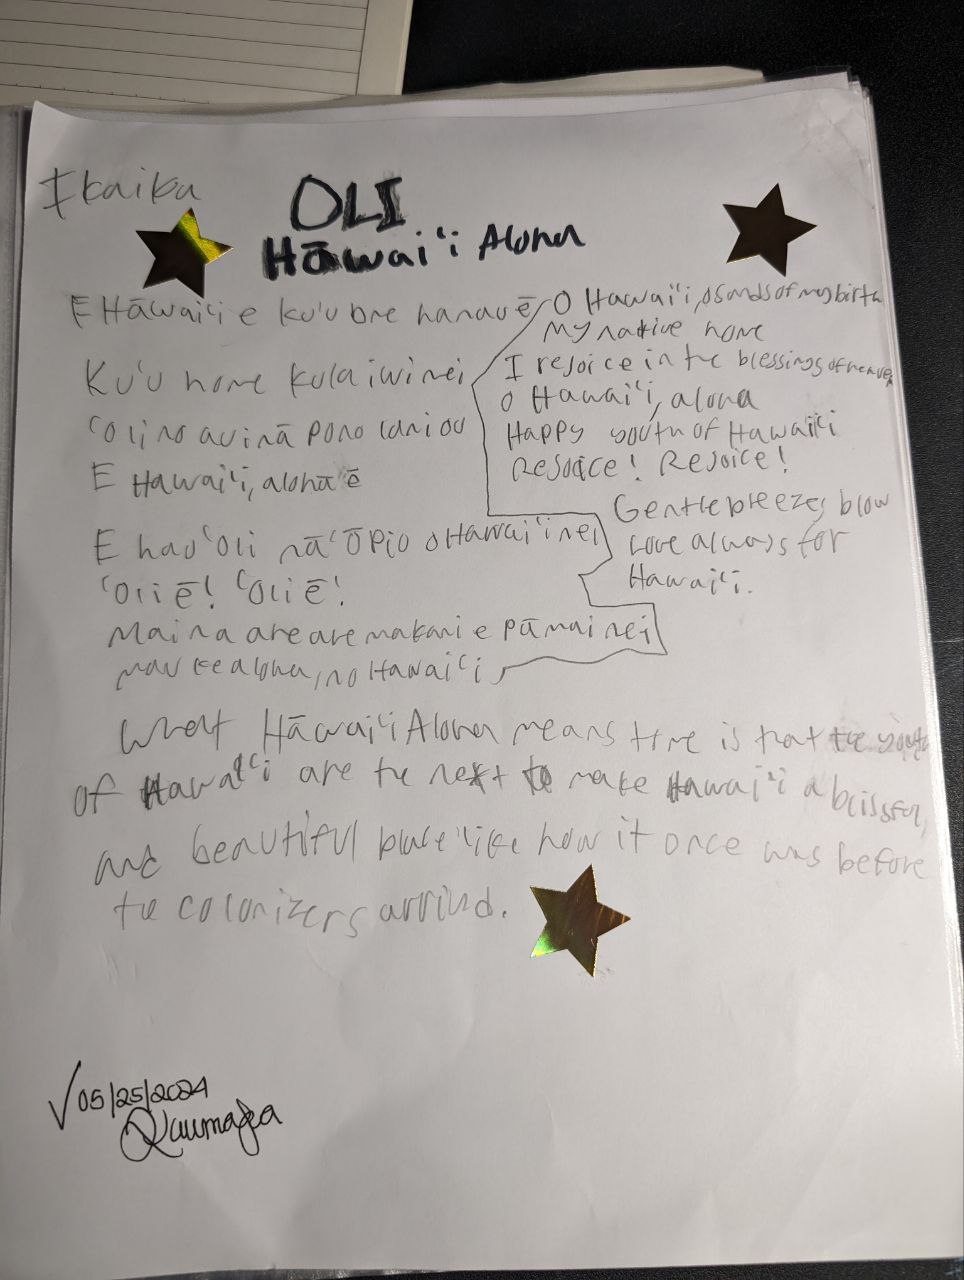 Ikaika
OLI
Hāwai'i Aloha
E Hāwai'i e ku'u one hanau ē
Ku'u home kulaiwi nei
'Oli no au i nā pono lani ou
E Hawai'i, aloha ē
E hau'oli nā 'Ōpio o Hawai'i nei
'Oli ē! 'Oli ē!
Mai na aheahe makani e pā mai nei
mau ke aloha, no Hawai'i
O Hawai'i, o sands of my birth
My native home
I rejoice in the blessings of heaven
O Hawai'i, aloha
Happy youth of Hawai'i
Rejoice! Rejoice!
Gentle breezes blow
Love always for
Hawai'i.
What Hāwai'i Aloha means to me is that the youth
of Hawai'i are the next to make Hawai'i a blissful,
and beautiful place like how it once was before
the colonizers arrived.
√ 05/25/2024